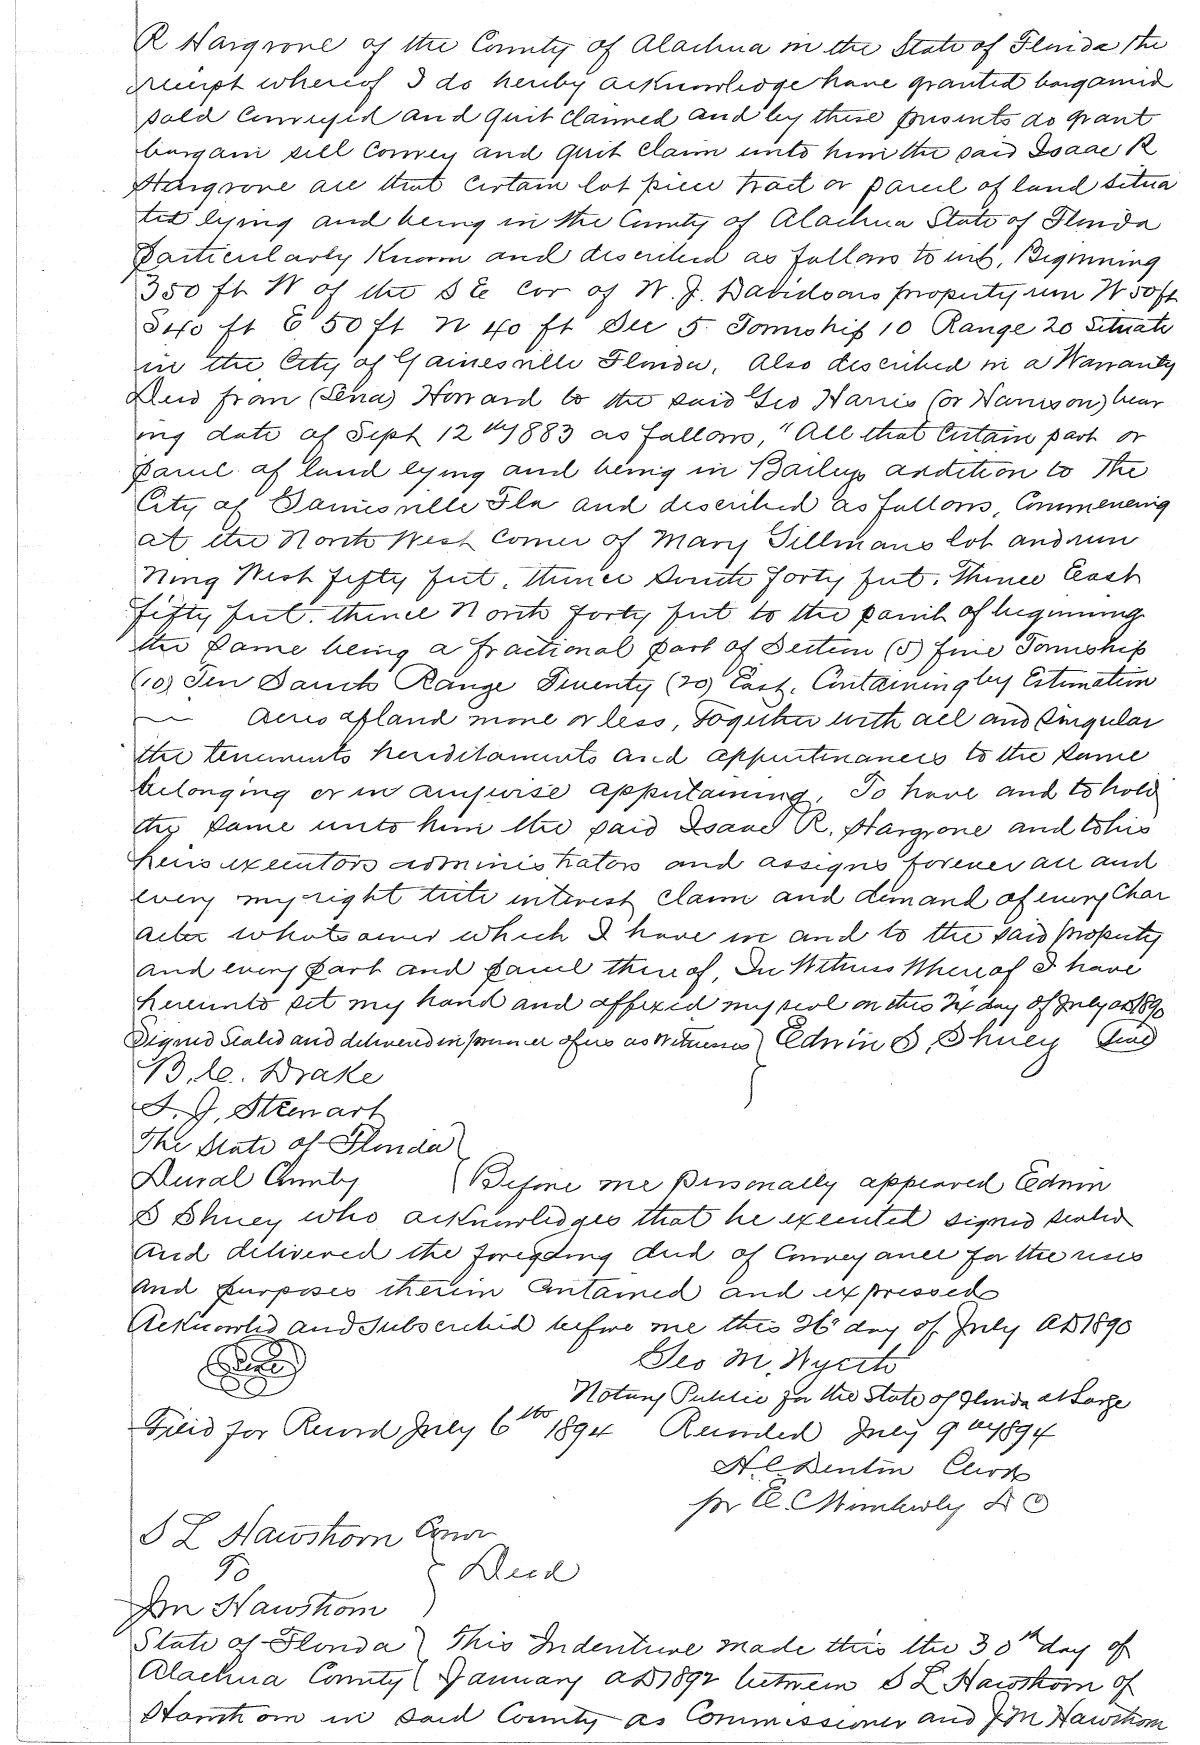 R Hargrove of the County of Alachua in the State of Florida the
receipt whereof I do hereby acknowledge have granted bargained
sold conveyed and quit claimed and by these presents do grant
bargain sell convey and quit claim unto him the said Isaac R
Hargrove all that certain lot piece tract or parcel of land situa
ted lying and being in the County of Alachua State of Florida
particularly known and described as follows to wit, Beginning
350 ft W of the S E cor of W. J. Davidsons property run W 50 ft
S 40 ft E 50 ft N 40 ft Sec 5 Township 10 Range 20 Situate
in the City of Gainesville Florida, Also described in a Warranty
Deed from (Lena) Howard to the said Geo Harris (or Harrison) bear
ing date of Sept 12th 1883 as follows, "All that certain part or
parcel of land lying and being in Baileys addition to the
City of Gainesville Fla and described as follows, Commencing
at the North West corner of Mary Tillmans lot and run
ning West fifty feet, thence South forty feet, thence East
fifty feet, thence North forty feet to the point of beginning
the same being a fractional part of Section (5) five Township
(10) Ten South Range Twenty (20) East, Containing by Estimation
— acres of land more or less, together with all and singular
the tenements hereditaments and appurtenances to the same
belonging or in anywise appertaining, To have and to hold
the same unto him the said Isaac R. Hargrove and to his
heirs executors administrators and assigns forever all and
every my right title interest claim and demand of every char
acter whatsoever which I have in and to the said property
and every part and parcel thereof, In Witness Whereof I have
hereunto set my hand and affixed my seal on this day of July AD 1890
Signed Sealed and delivered in presence of us as Witnesses Edwin S. Shuey Seal
B. C. Drake
J. J. Stewart
The State of Florida
Duval County Before me personally appeared Edwin
S Shuey who acknowledges that he executed signed sealed
and delivered the foregoing deed of conveyance for the uses
and purposes therein contained and expressed
Acknowled and subscribed before me this 26 day of July AD 1890
Seal Geo M. Wyeth
Notary Public for the State of Florida at Large
Filed for Record July 6th 1894 Recorded July 9th 1894
H. C. Denton Clerk
pr E. C. Wimberly D C
S L Hawthorn Comr
To Deed
Jm Hawthorn
State of Florida This Indenture made this the 30th day of
Alachua County January AD 1892 between S L Hawthorn of
Hawthorn in said County as Commissioner and J M Hawthorn